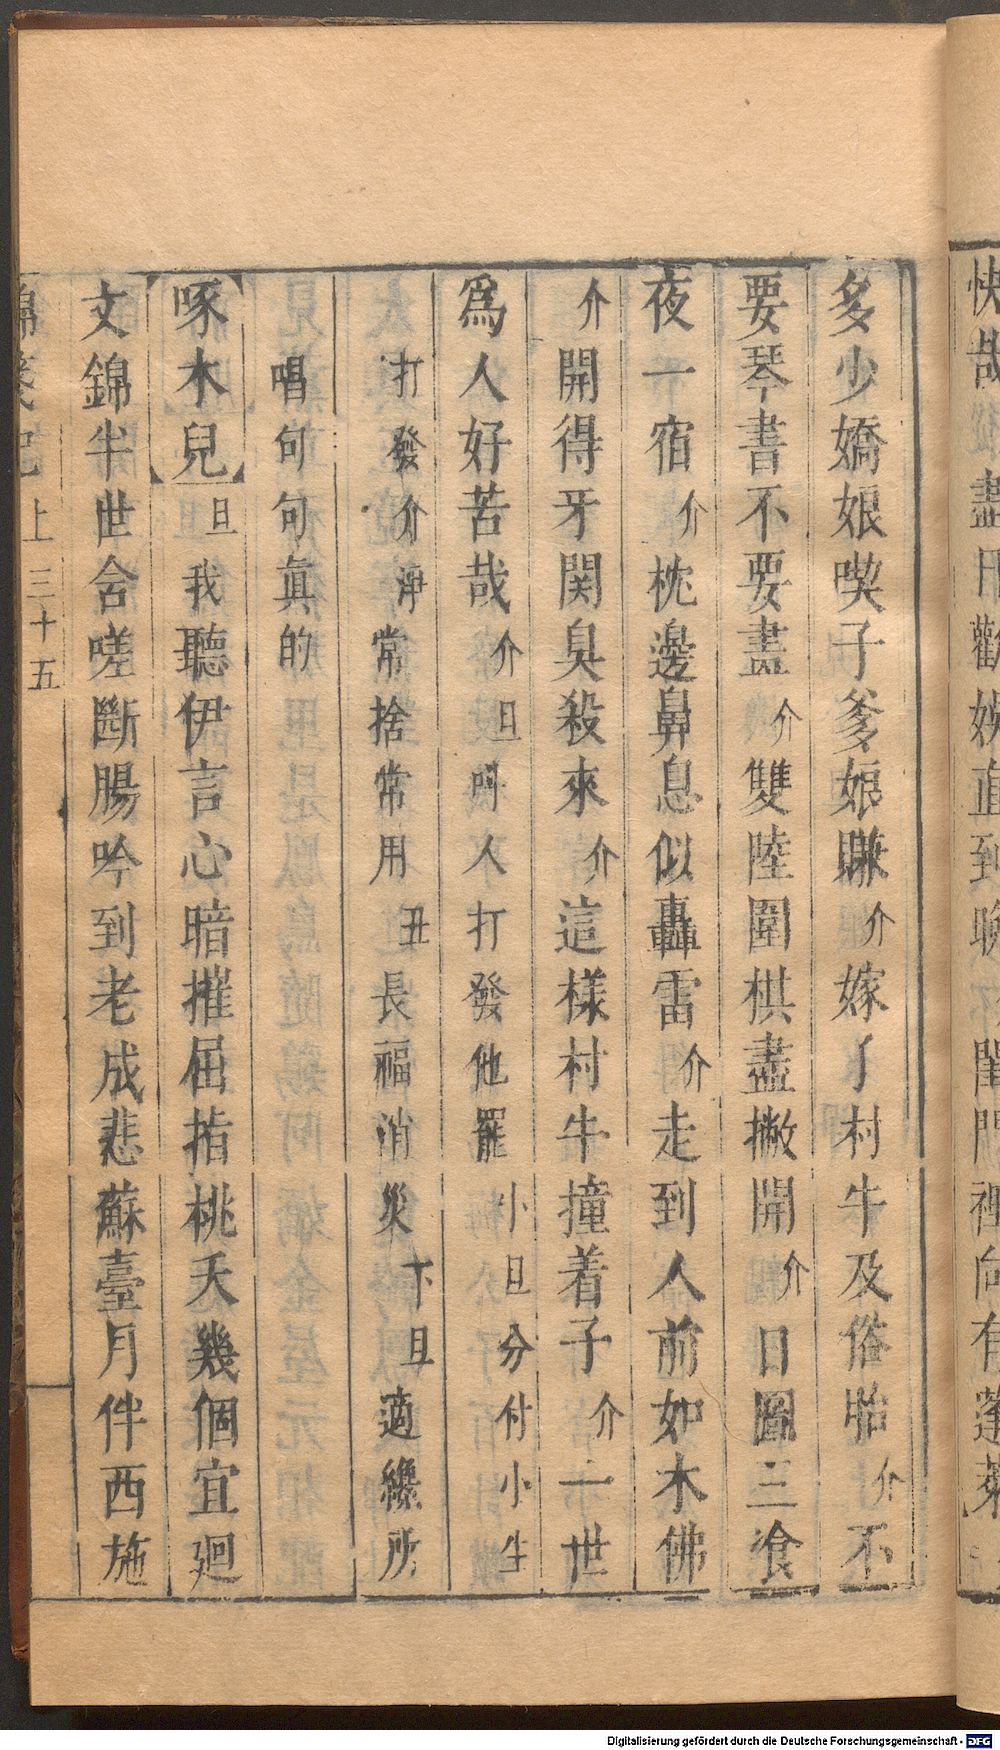 快哉盡日歡娛直到晚閨門裡向有蓬萊
多少嬌娘喫子爹娘賺介嫁了村牛及俗胎介不
要琴書不要畫介雙陸圍棋盡撇開介日圖三飡
夜一宿介枕邊鼻息似轟雷介走到人前如木佛
介開得牙関臭殺來介這樣村牛撞着子介一世
爲人好苦哉介旦呌人打發他罷小旦分付小生
打發介淨常捨常用丑長福消災下旦適纔所
唱句句眞的
【啄木兒】旦我聽伊言心暗摧屈指桃夭幾個宜廻
文錦半世舍嗟斷腸吟到老成悲蘇臺月伴西施
錦箋記 上 三十五
Digitalisierung gefördert durch die Deutsche Forschungsgemeinschaft - DFG